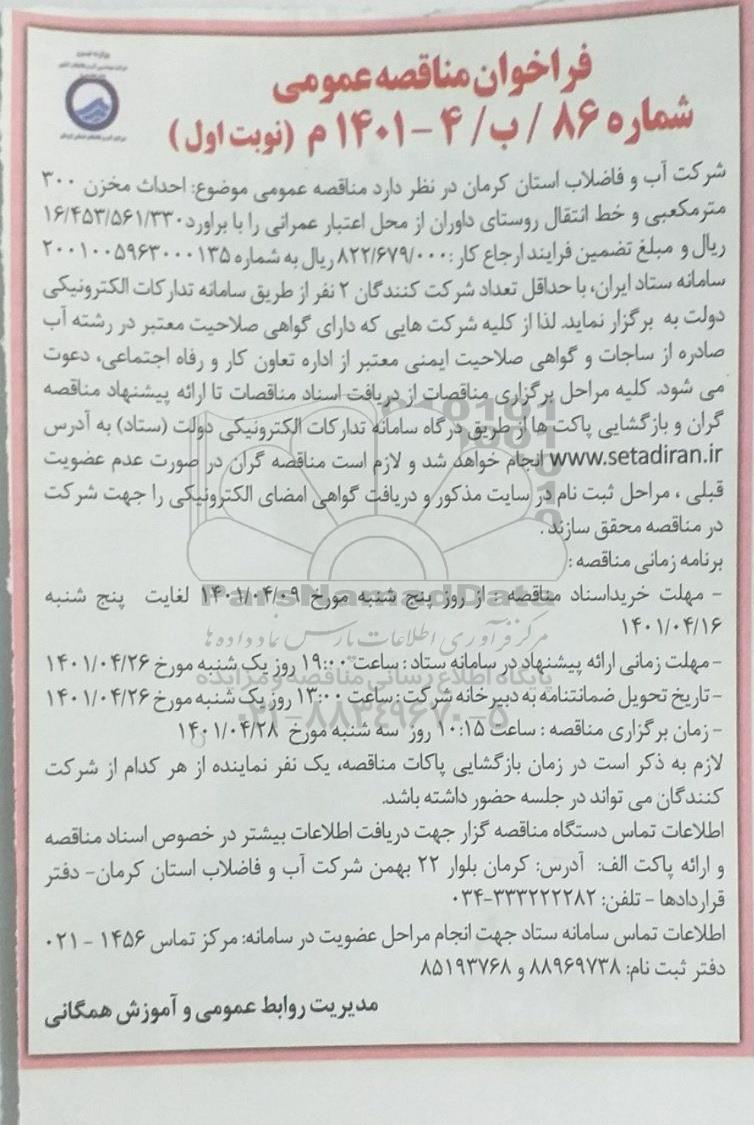 فراخوان مناقصه عمومی
شماره ۸۶ / ب/ ۴ - ۱۴۰۱ م (نوبت اول)
شرکت آب و فاضلاب استان کرمان در نظر دارد مناقصه عمومی موضوع: احداث مخزن ۳۰۰
مترمکعبی و خط انتقال روستای داوران از محل اعتبار عمرانی را با براورد ۱۶/۴۵۳/۵۶۱/۳۳۰
ریال و مبلغ تضمین فرایند ارجاع کار: ۸۲۲/۶۷۹/۰۰۰ ریال به شماره ۲۰۰۱۰۰۵۹۶۳۰۰۰۱۳۵
سامانه ستاد ایران، با حداقل تعداد شرکت کنندگان ۲ نفر از طریق سامانه تدارکات الکترونیکی
دولت به برگزار نماید. لذا از کلیه شرکت هایی که دارای گواهی صلاحیت معتبر در رشته آب
صادره از ساجات و گواهی صلاحیت ایمنی معتبر از اداره تعاون کار و رفاه اجتماعی، دعوت
می شود. کلیه مراحل برگزاری مناقصات از دریافت اسناد مناقصات تا ارائه پیشنهاد مناقصه
گران و بازگشایی پاکت ها از طریق درگاه سامانه تدارکات الکترونیکی دولت (ستاد) به آدرس
www.setadiran.ir انجام خواهد شد و لازم است مناقصه گران در صورت عدم عضویت
قبلی ، مراحل ثبت نام در سایت مذکور و دریافت گواهی امضای الکترونیکی را جهت شرکت
در مناقصه محقق سازند .
برنامه زمانی مناقصه :
- مهلت خریداسناد مناقصه : از روز پنج شنبه مورخ ۱۴۰۱/۰۴/۰۹ لغایت پنج شنبه
۱۴۰۱/۰۴/۱۶
- مهلت زمانی ارائه پیشنهاد در سامانه ستاد : ساعت ۱۹:۰۰ روز یک شنبه مورخ ۱۴۰۱/۰۴/۲۶
- تاریخ تحویل ضمانتنامه به دبیرخانه شرکت : ساعت ۱۳:۰۰ روز یک شنبه مورخ ۱۴۰۱/۰۴/۲۶
- زمان برگزاری مناقصه : ساعت ۱۰:۱۵ روز سه شنبه مورخ ۱۴۰۱/۰۴/۲۸
لازم به ذکر است در زمان بازگشایی پاکات مناقصه، یک نفر نماینده از هر کدام از شرکت
کنندگان می تواند در جلسه حضور داشته باشد.
اطلاعات تماس دستگاه مناقصه گزار جهت دریافت اطلاعات بیشتر در خصوص اسناد مناقصه
و ارائه پاکت الف: آدرس: کرمان بلوار ۲۲ بهمن شرکت آب و فاضلاب استان کرمان- دفتر
قراردادها - تلفن: ۳۳۳۲۲۲۲۸۲-۰۳۴
اطلاعات تماس سامانه ستاد جهت انجام مراحل عضویت در سامانه: مرکز تماس ۱۴۵۶ - ۰۲۱
دفتر ثبت نام: ۸۸۹۶۹۷۳۸ و ۸۵۱۹۳۷۶۸
مدیریت روابط عمومی و آموزش همگانی
ParsNamadData
مرکز فرآوری اطلاعات پارس نماد داده ها
پایگاه اطلاع رسانی مناقصه و مزایده
۰۲۱-۸۸۳۴۹۶۷۰-۵